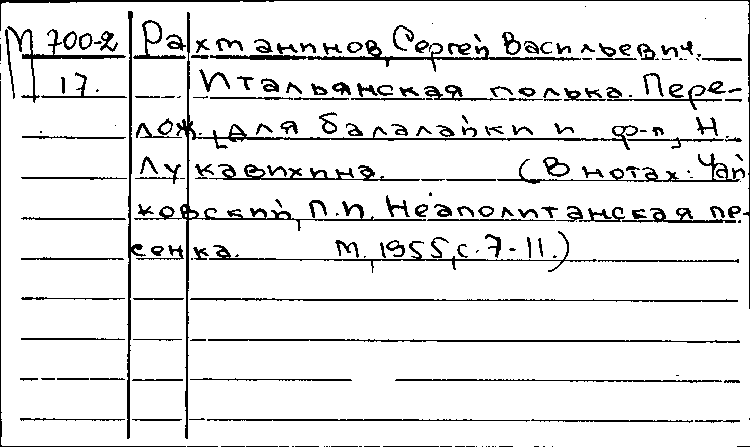 М 700-2 Рахманинов, Сергей Васильевич.
17. Итальянская полька. Пере-
лож. для балалайки и ф-п, Н.
Лукавихина. (В нотах: Чай
ковский, П.И. Неаполитанская пе-
сенка. М., 1955, с. 7-11.)